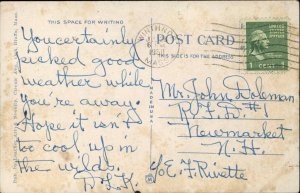 THIS SPACE FOR WRITING
You certainly
picked good
weather while
you're away.
Hope it isn't
too cool up in
the wilds.
POST CARD
THIS SIDE IS FOR THE ADDRESS
1 CENT 1
Mr. John Doleman
R.F.D. #1
Newmarket
N.H.
c/o E. F. Rivette